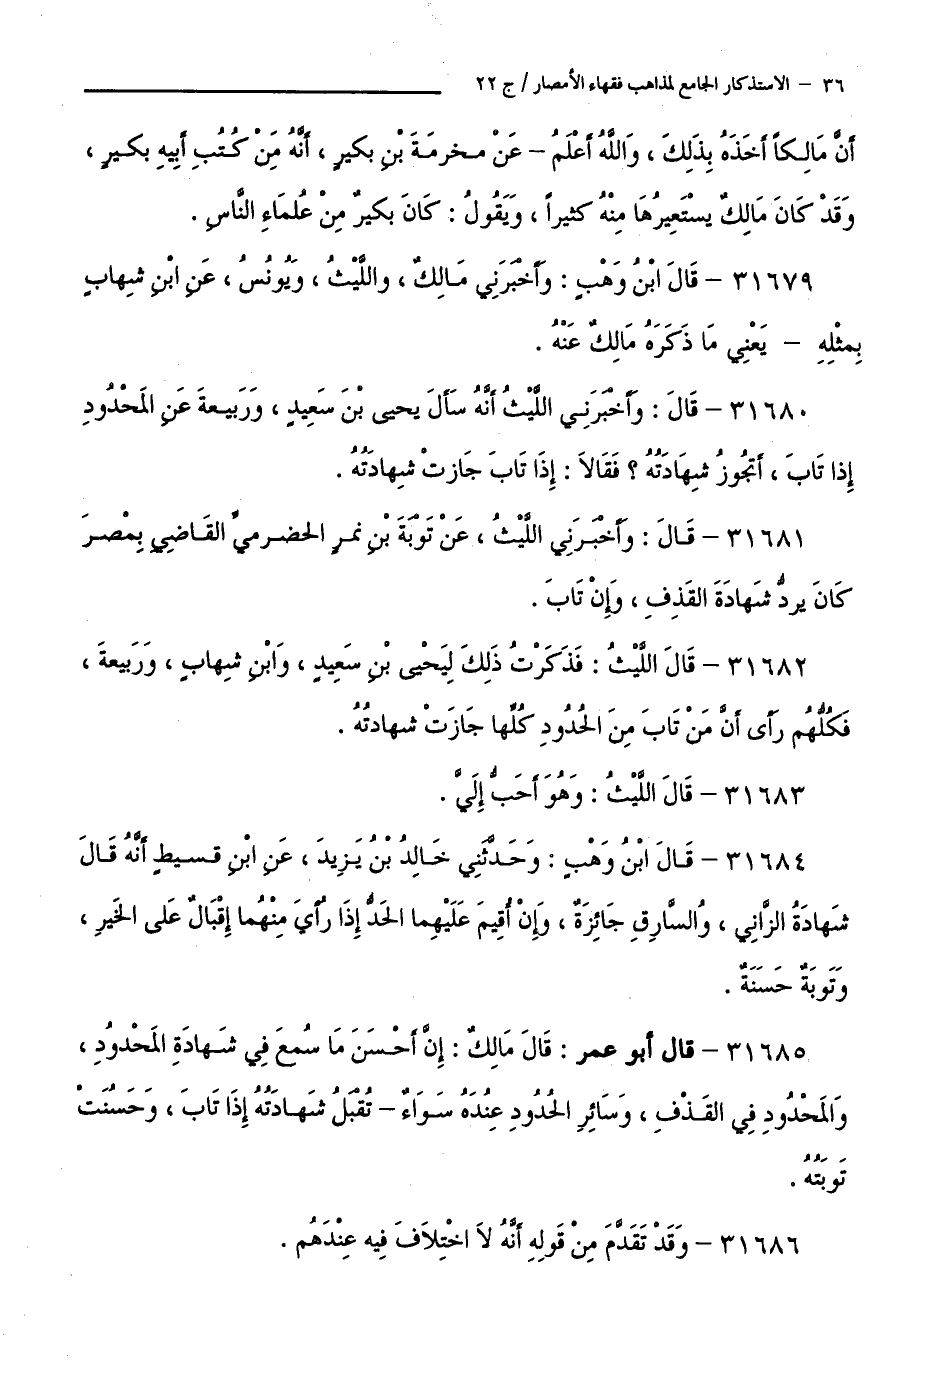 ٣٦ – الاستذكار الجامع لمذاهب فقهاء الأمصار / ج ٢٢
أَنَّ مَالِكاً أَخَذَهُ بِذَلِكَ ، وَاللَّهُ أَعْلَمُ – عَنْ مخرمَةَ بْنِ بكيرٍ ، أَنَّهُ مَنْ كُتُبِ أَبِيهِ بكيرٍ ،
وَقَدْ كَانَ مَالِكٌ يسْتَعِيرُهَا مِنْهُ كثيراً ، وَيَقُولُ : كَانَ بكيرٌ مِنْ عُلمَاءِ النَّاسِ .
٣١٦٧٩ – قَالَ ابْنُ وَهْبٍ : وَأَخْبَرَنِي مَالِكٌ ، واللَّيْثُ ، وَيُونُسُ ، عَنِ ابْنِ شِهابٍ
بِمثْلِهِ – يَعْنِي مَا ذَكَرَهُ مَالِكٌ عَنْهُ .
٣١٦٨٠ – قَالَ : وَأَخْبَرَنِي اللَّيْثُ أَنَّهُ سَأَلَ يحيى بْنَ سَعِيدٍ ، وَرَبِيعةَ عَنِ المَحْدُودِ
إِذا تَابَ ، أَتجُوزُ شهَادَتُهُ ؟ فَقَالاَ : إِذَا تَابَ جَازتْ شهادَتُهُ .
٣١٦٨١ – قَالَ : وَأَخْبَرَنِي اللَّيْثُ ، عَنْ تَوْبَةَ بْنِ نمرٍ الحضرميِّ القَاضِي بِمْصرَ
كَانَ يردُّ شَهادَةَ القَذِفِ ، وَإِنْ تَابَ .
٣١٦٨٢ – قَالَ اللَّيْثُ : فَذَكَرْتُ ذَلِكَ لِيَحْيى بْنِ سَعِيدٍ ، وَابْنِ شِهابٍ ، وَرَبِيعةَ ،
فَكُلُّهُم رَأَى أَنَّ مَنْ تَابَ مِنَ الحُدُودِ كُلِّها جَازَتْ شهادتُهُ .
٣١٦٨٣ – قَالَ اللَّيْثُ : وَهُوَ أَحَبُّ إِلَيَّ .
٣١٦٨٤ – قَالَ ابْنُ وَهْبٍ : وَحَدَّثَنِي خَالِدُ بْنُ يَزِيدَ ، عَنِ ابْنِ قسيطٍ أَنَّهُ قَالَ
شهَادَةُ الزَّانِي ، والسَّارِقِ جَائِزَةٌ ، وَإِنْ أُقِيمَ عَلَيْهِما الحَدُّ إِذَا رُأَيَ مِنْهُما إِقْبَالٌ عَلى الخَيرِ ،
وَتَوبَةٌ حَسَنَةٌ .
٣١٦٨٥ – قال أبو عمر : قَالَ مَالِكٌ : إِنَّ أَحْسَنَ مَا سُمعَ فِي شَهادَةِ المَحْدُودِ ،
وَالمَحْدُودِ فِي القَذْفِ ، وَسَائِرِ الحُدُودِ عِنْدَهُ سَوَاءٌ – تُقْبَلُ شَهادَتُهُ إِذَا تَابَ ، وَحَسُنَتْ
تَوبَتُهُ .
٣١٦٨٦ – وَقَدْ تَقَدَّمَ مِنْ قَولِهِ أَنَّهُ لاَ اخْتِلاَفَ فِيهِ عِنْدَهُم .